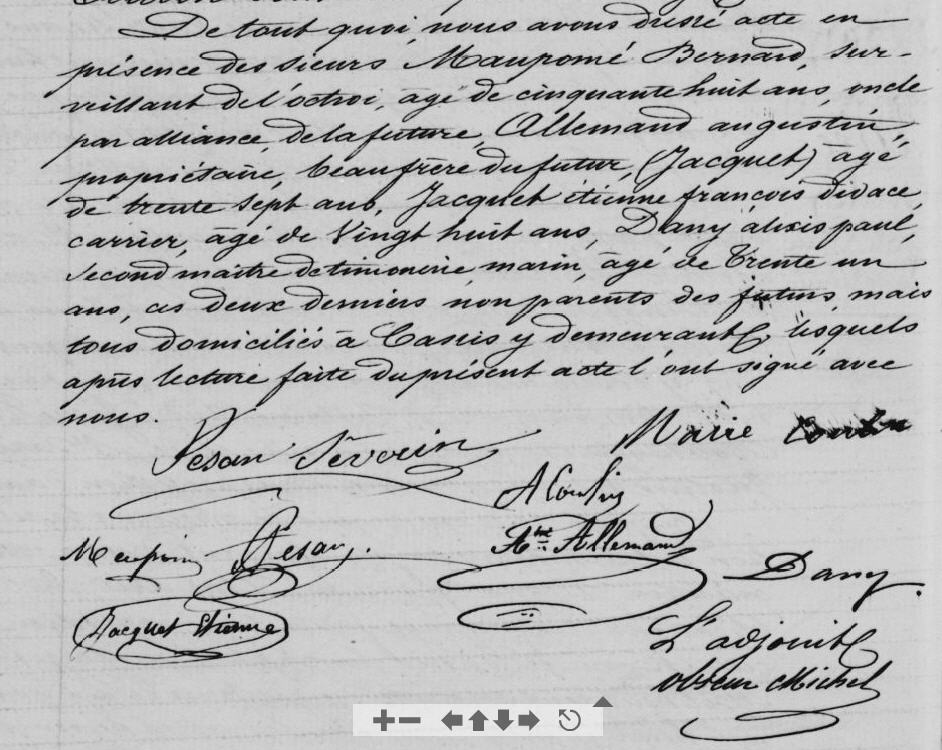 De tout quoi, nous avons dressé acte en
présence des sieurs Maupomé Bernard, sur-
veillant de l'octroi, âgé de cinquante huit ans, oncle
par alliance, de la future, Allemand augustin,
propriétaire, beaufrère du futur, (Jacquet) âgé
de trente sept ans, Jacquet etienne françois didace,
carrier, âgé de vingt huit ans, Dany alexis paul,
second maître de timonerie, marin, âgé de Trente un
ans, ces deux derniers non parents des futurs, mais
tous domiciliés à Cassis y demeurant, lesquels
après lecture faite du présent acte l'ont signé avec
nous.
Pesan Séverin Marie
A
Pesan Ate Allemand
Dany
Jacquet Etienne
L'adjoint
Michel